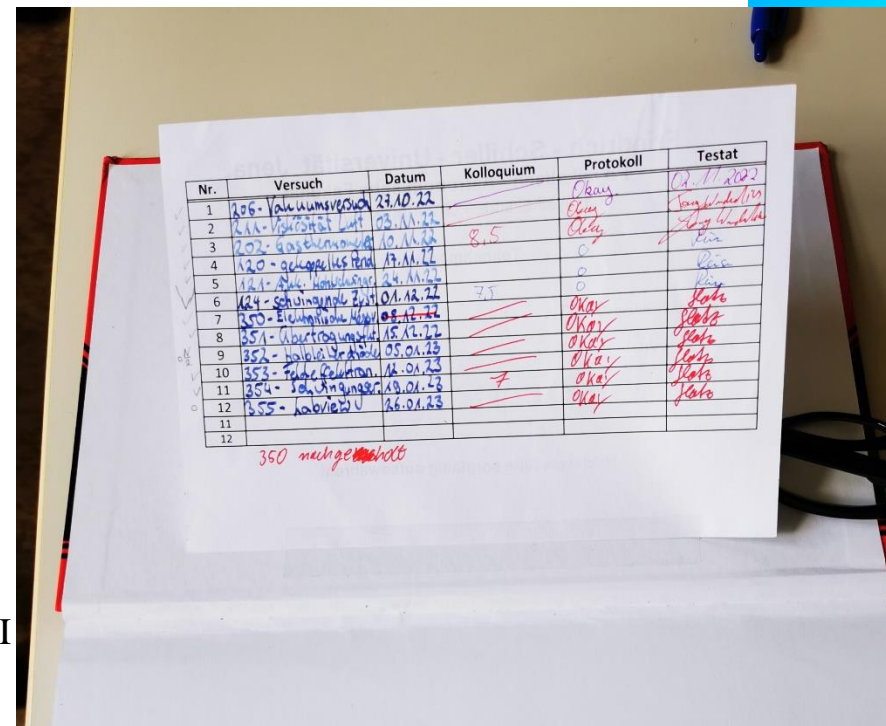 Nr. Versuch Datum Kolloquium Protokoll Testat
1 206 - Vakuumsversuch 27.10.22 Okay 02.11.2022
2 211 - Viskosität Luft 03.11.22 Okay
3 202 - Gasthermometer 10.11.22 8,5 Okay
4 120 - gekoppeltes Pend 17.11.22 0
5 121 - 24.11.22 0
6 124 - schwingende Syst 01.12.22 7,5 0
7 350 - Elektrische Messv 08.12.22 Okay
8 351 - Übertragungs 15.12.22 Okay
9 352 - Halbleiterdiode 05.01.23 Okay
10 353 - Feldeffekttran. 12.01.23 Okay
11 354 - Schwingungser. 19.01.23 7 Okay
12 355 - Labview 26.01.23 Okay
11
12
350 nachgeholt
I